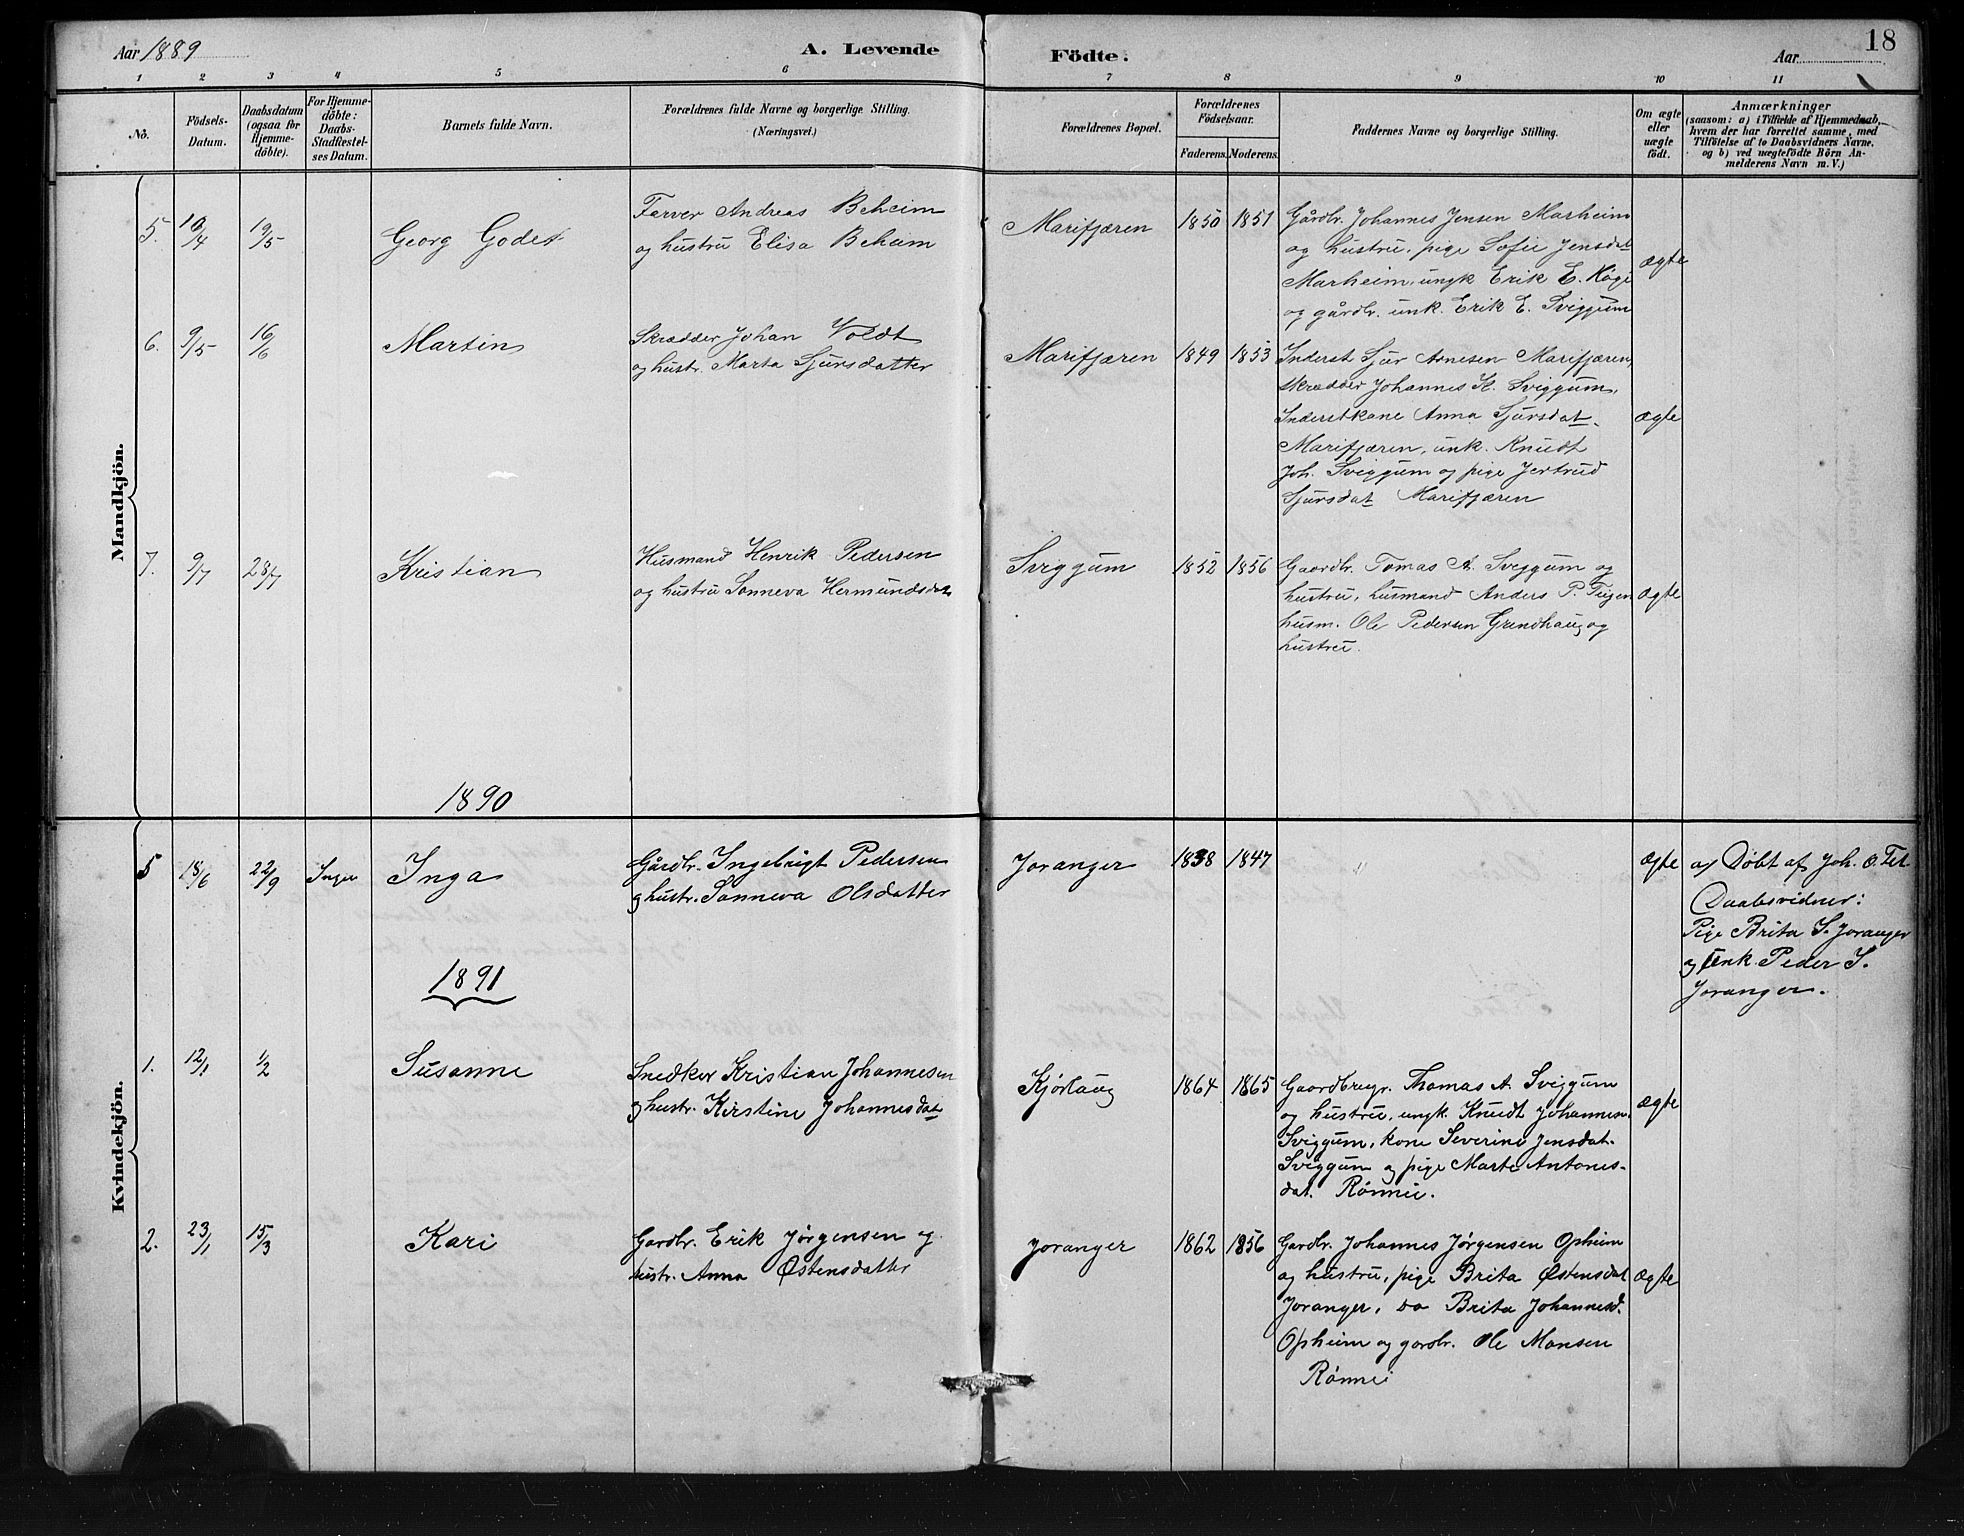 Aar 1889
A. Levende
Födte.
Aar
18
1 2 3 4 5 6 7 8 9 10 11
No.
Födsels-
Datum.
Daabsdatum
(ogsaa for
Hjemme-
döbte).
For Hjemme-
döbte:
Daabs-
Stadfæstel-
ses Datum.
Barnets fulde Navn.
Forældrenes fulde Navne og borgerlige Stilling.
(Næringsvei.)
Forældrenes Bopæl.
Forældrenes
Födselsaar.
Faderens. Moderens.
Faddernes Navne og borgerlige Stilling.
Om ægte
eller
uægte
födt.
Anmærkninger
(saasom: a) i Tilfælde af Hjemmedaab,
hvem der har forrettet samme, med
Tilföielse af to Daabsvidners Navne,
og b) ved uægtefödte Börn An-
melderens Navn m. V.)
Mandkjön.
5. 10/4 19/5
Georg Godet
Farver Andreas Beheim
og hustru Elisa Beheim
Marifjæren
1850 1851
Gårdbr. Johannes Jensen Marheim
og hustru, pige Sofie Jensdat
Marheim, ungk Erik E. Høgi
og gårdbr. unk. Erik E. Sviggum
ægte
6. 9/5 16/6
Martin
Skrædder Johan Voldt
og hustr. Marta Sjursdatter
Marifjæren
1849 1853
Inderst Sjur Arnesen Marifjæren,
skrædder Johannes K. Sviggum,
Inderstkone Anna Sjursdat.
Marifjæren, unk. Knudt
Joh. Sviggum og pige Jertrud
Sjursdat Marifjæren
ægte
7. 9/7 28/7
Kristian
Husmand Henrik Pedersen
og hustru Sønneva Hermundsdat
Sviggum
1852 1856
Gaardbr. Tomas A. Sviggum og
hustru, husmand Anders P. Teigen
husm. Ole Pedersen Grindhaug og
hustru.
ægte
1890
Kvindekjön.
5 18/6 22/9 Inger
Inga
Gårdbr. Ingebrigt Pedersen
og hustr. Sønneva Olsdatter
Joranger
1838 1847
ægte
a) Døbt af Joh. O. Fet
Daabsvidner:
Pige Brita I. Joranger
og Unk. Peder I.
Joranger.
1891
1. 12/1 1/2
Susanne
Snedker Kristian Johannesen
og hustr. Kirstine Johannesdat
Kjørlaug
1864 1865
Gaardbrugr. Thomas A. Sviggum
og hustru, ungk. Knudt Johannesn.
Sviggum, kone Severine Jensdat.
Sviggum og pige Marte Antonis-
dat. Rønnei.
ægte
2. 23/1 15/3
Kari
Gardbr. Erik Jørgensen og
hustr. Anna Østensdatter
Joranger
1862 1856
Gardbr. Johannes Jørgensen Opheim
og hustru, pige Brita Østensdat
Joranger, do Brita Johannesd.
Opheim og gardbr. Ole Monsen
Rønnei
ægte